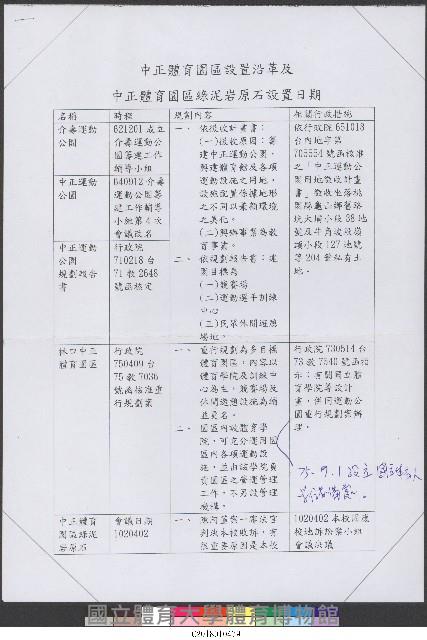 中正體育園區設置沿革及
中正體育園區綠泥岩原石設置日期
名稱 時程 規劃內容 相關行政措施
介壽運動
公園
621201 成立
介壽運動公
園籌建工作
輔導小組
一、 依徵收計畫書：
(一)徵收原因：籌
建中正運動公園，
興建體育館及各項
運動設施之用地，
設施配置依據地形
之不同以兼顧環境
之美化。
(二)興辦事業為教
育事業。
二、 依規劃報告書：建
園目標為
(一)競賽場
(二)運動選手訓練
中心
(三)民眾休閒遊憩
場地。
依行政院 651018
台內地字第
705554 號函核准
之「中正運動公
園用地徵收計畫
書」徵收坐落桃
園縣龜山鄉舊路
坑大埔小段 38 地
號及牛角坡坡嶺
頂小段 127 地號
等 204 筆私有土
地。
中正運動
公園
640912 介壽
運動公園籌
建工作輔導
小組第 4 次
會議改名
中正運動
公園
規劃報告
書
行政院
710218 台
71 教 2648
號函核定
林口中正
體育園區
行政院
750409 台
75 教 7035
號函核准重
行規劃案
一、 重行規劃為多目標
體育園區，內容以
體育學院及訓練中
心為主，競賽場及
休閒遊憩設施為輔
並更名。
二、 園區內設體育學
院，可充分運用園
區內各項運動設
施，並由該學院負
責園區之營運管理
工作，不另設管理
機構。
行政院 730514 台
73 教 7340 號函指
示：有關國立體
育學院籌設計
畫，併同運動公
園重行規劃案辦
理。
75.9.1 設立
中正體育
園區綠泥
岩原石
會議日期
1020402
一、
很重要原因是本校
1020402 本校因應
校地訴訟案小組
會議決議
國立體育大學體育博物館